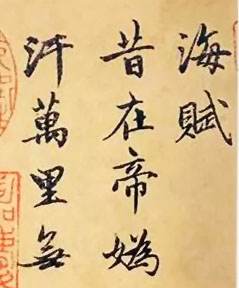 海賦
昔在帝媯
汗萬里無